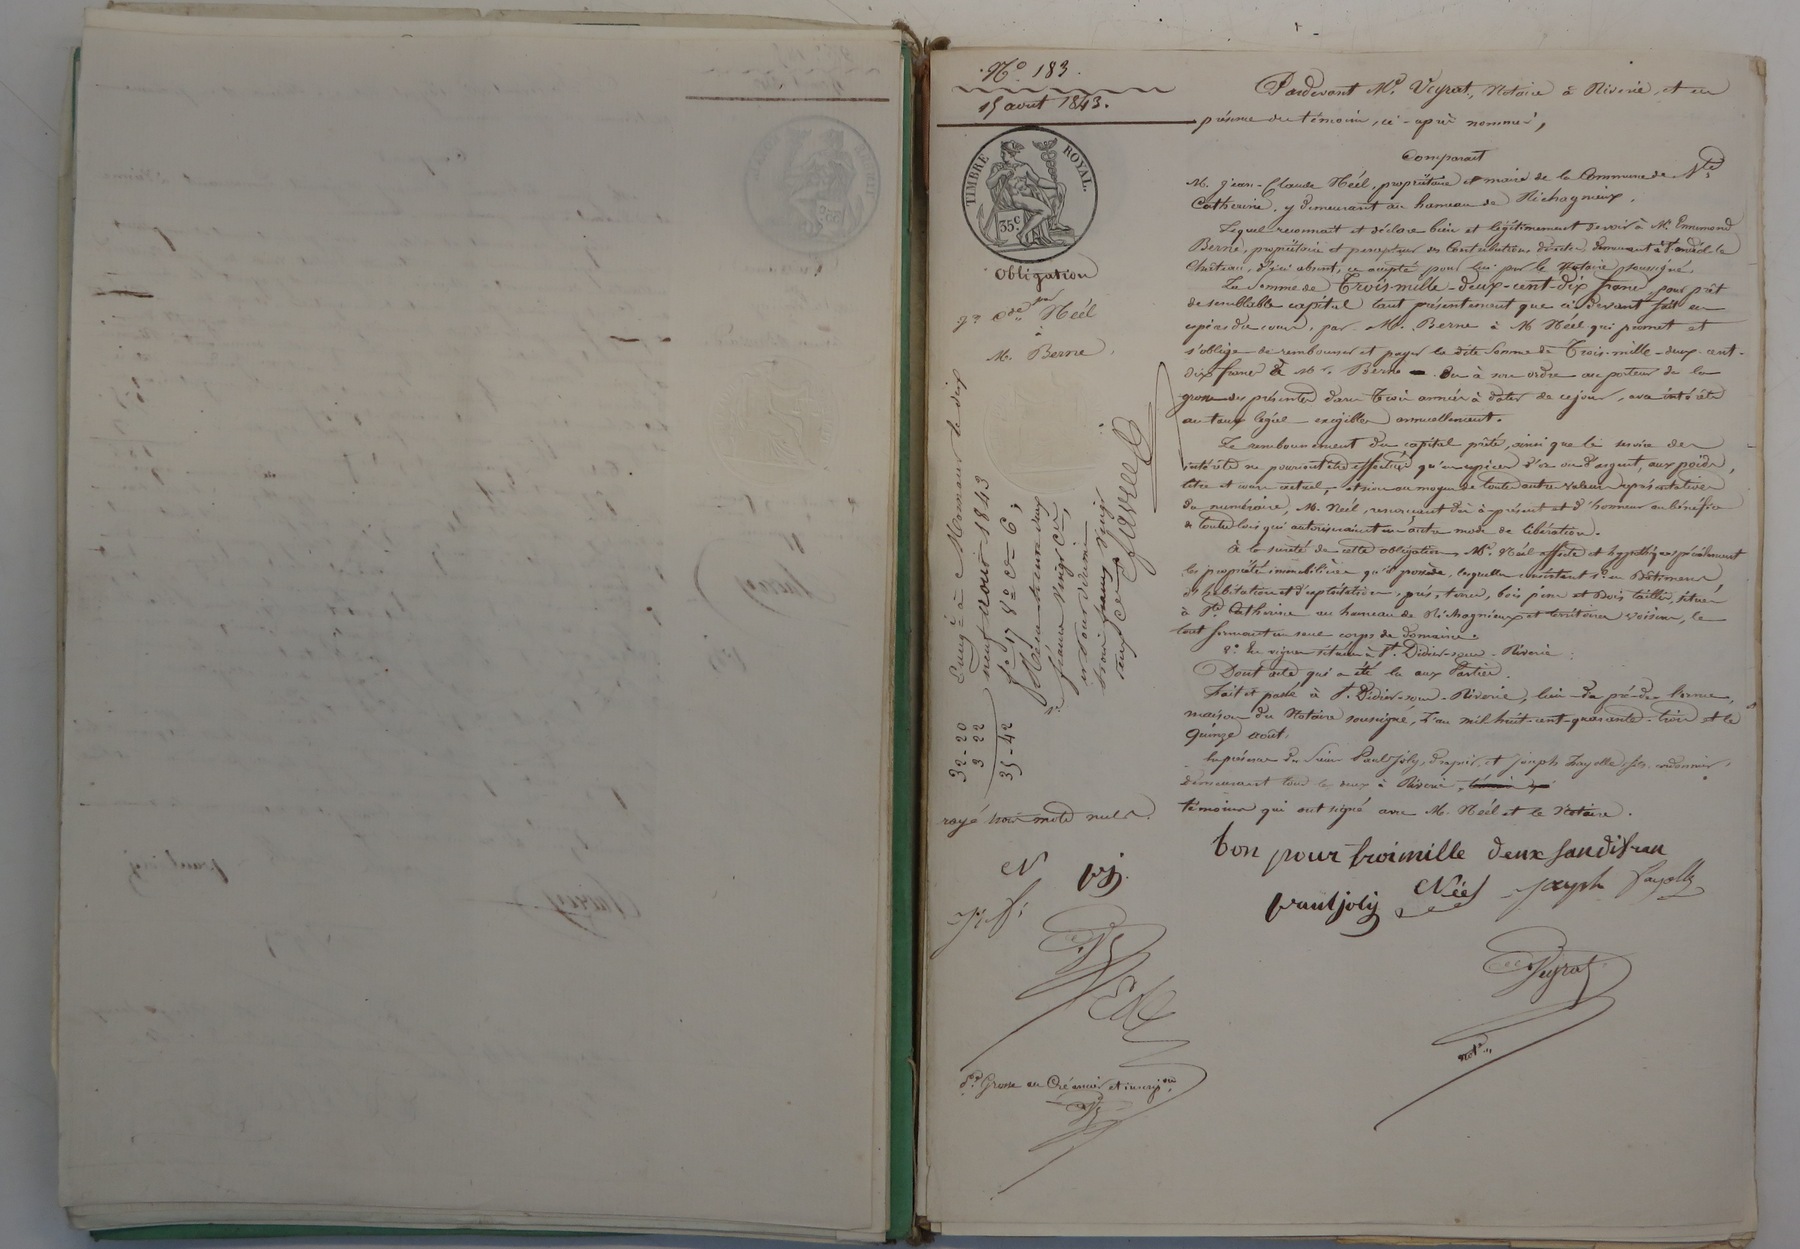 N.º 183.
15 aout 1843.
TIMBRE ROYAL.
35 c.
Obligation
Néel
à
M. Berne.
Pardevant M.e Veyrat, Notaire à Riverie, et en
présence des témoins, ci-après nommés,
Comparait
M. Jean-Claude Néel, propriétaire et maire de la Commune de Ste
Catherine, y demeurant au hameau de
Lequel reconnait et déclare bien et légitimement devoir à Mr. Ennemond
Berne, propriétaire et percepteur des Contributions directes demeurant à St andré-le
Château, d'ici absent, ce accepté pour lui par le Notaire soussigné.
La Somme de Trois-mille-deux-cent-dix francs, pour prêt
de semblable capital tant présentement que ci-devant fait en
espèces de cours, par Mr. Berne à M. Néel qui promet et
s'oblige de rembourser et payer la dite Somme de Trois-mille-deux-cent-
dix francs à Mr. Berne ou à son ordre au porteur de la
grosse des présentes dans trois années à dater de ce jour, avec intérêts
au taux légal exigibles annuellement.
Le remboursement du capital prêté, ainsi que le service des
intérêts ne pourront être effectués qu'en espèces d'or ou d'argent, aux poids,
titre et cours actuel, et non au moyen de toute autre valeur représentative
du numéraire, M. Néel, renonçant dès à présent et d'honneur au bénéfice
de toutes lois qui autoriseraient un autre mode de libération.
à la sureté de cette obligation, Mr. Néel affecte et hypothèque spécialement
les propriétés immobilières qu'il possède, lesquelles consistent 1.º en Bâtiments
d'habitation et d'exploitation, prés, terres, bois pins et Bois taillis, situés
à Ste Catherine au hameau de et territoires voisins, le
tout formant un seul corps de domaine.
2.º En vignes situées à St. Didier-sous-Riverie.
Dont acte qui a été lu aux Parties.
Fait et passé à St. Didier-sous-Riverie, lieu du pré-de-
maison du Notaire soussigné, L'an mil huit-cent-quarante-trois et le
quinze août,
En présence des Sieurs Paul Joly, et Joseph Fayolle fils, cordonnier,
demeurant tous les deux à Riverie,
témoins qui ont signé avec M. Néel et le Notaire.
bon pour troimille deux sandifran
paul joly Néel joseph fayolle
Veyrat
not.e
Enreg.é à Mornant le dix
neuf aout 1843
f.º 17 r.º c.e 6,
Reçu trente deux
francs vingt c.es,
et pour décime
trois francs vingt
deux cent.
32-20
3 22
35-42
rayé trois mots nuls.
N pj.
J. f.
d.é Grosse au Créancier et inscrip.on